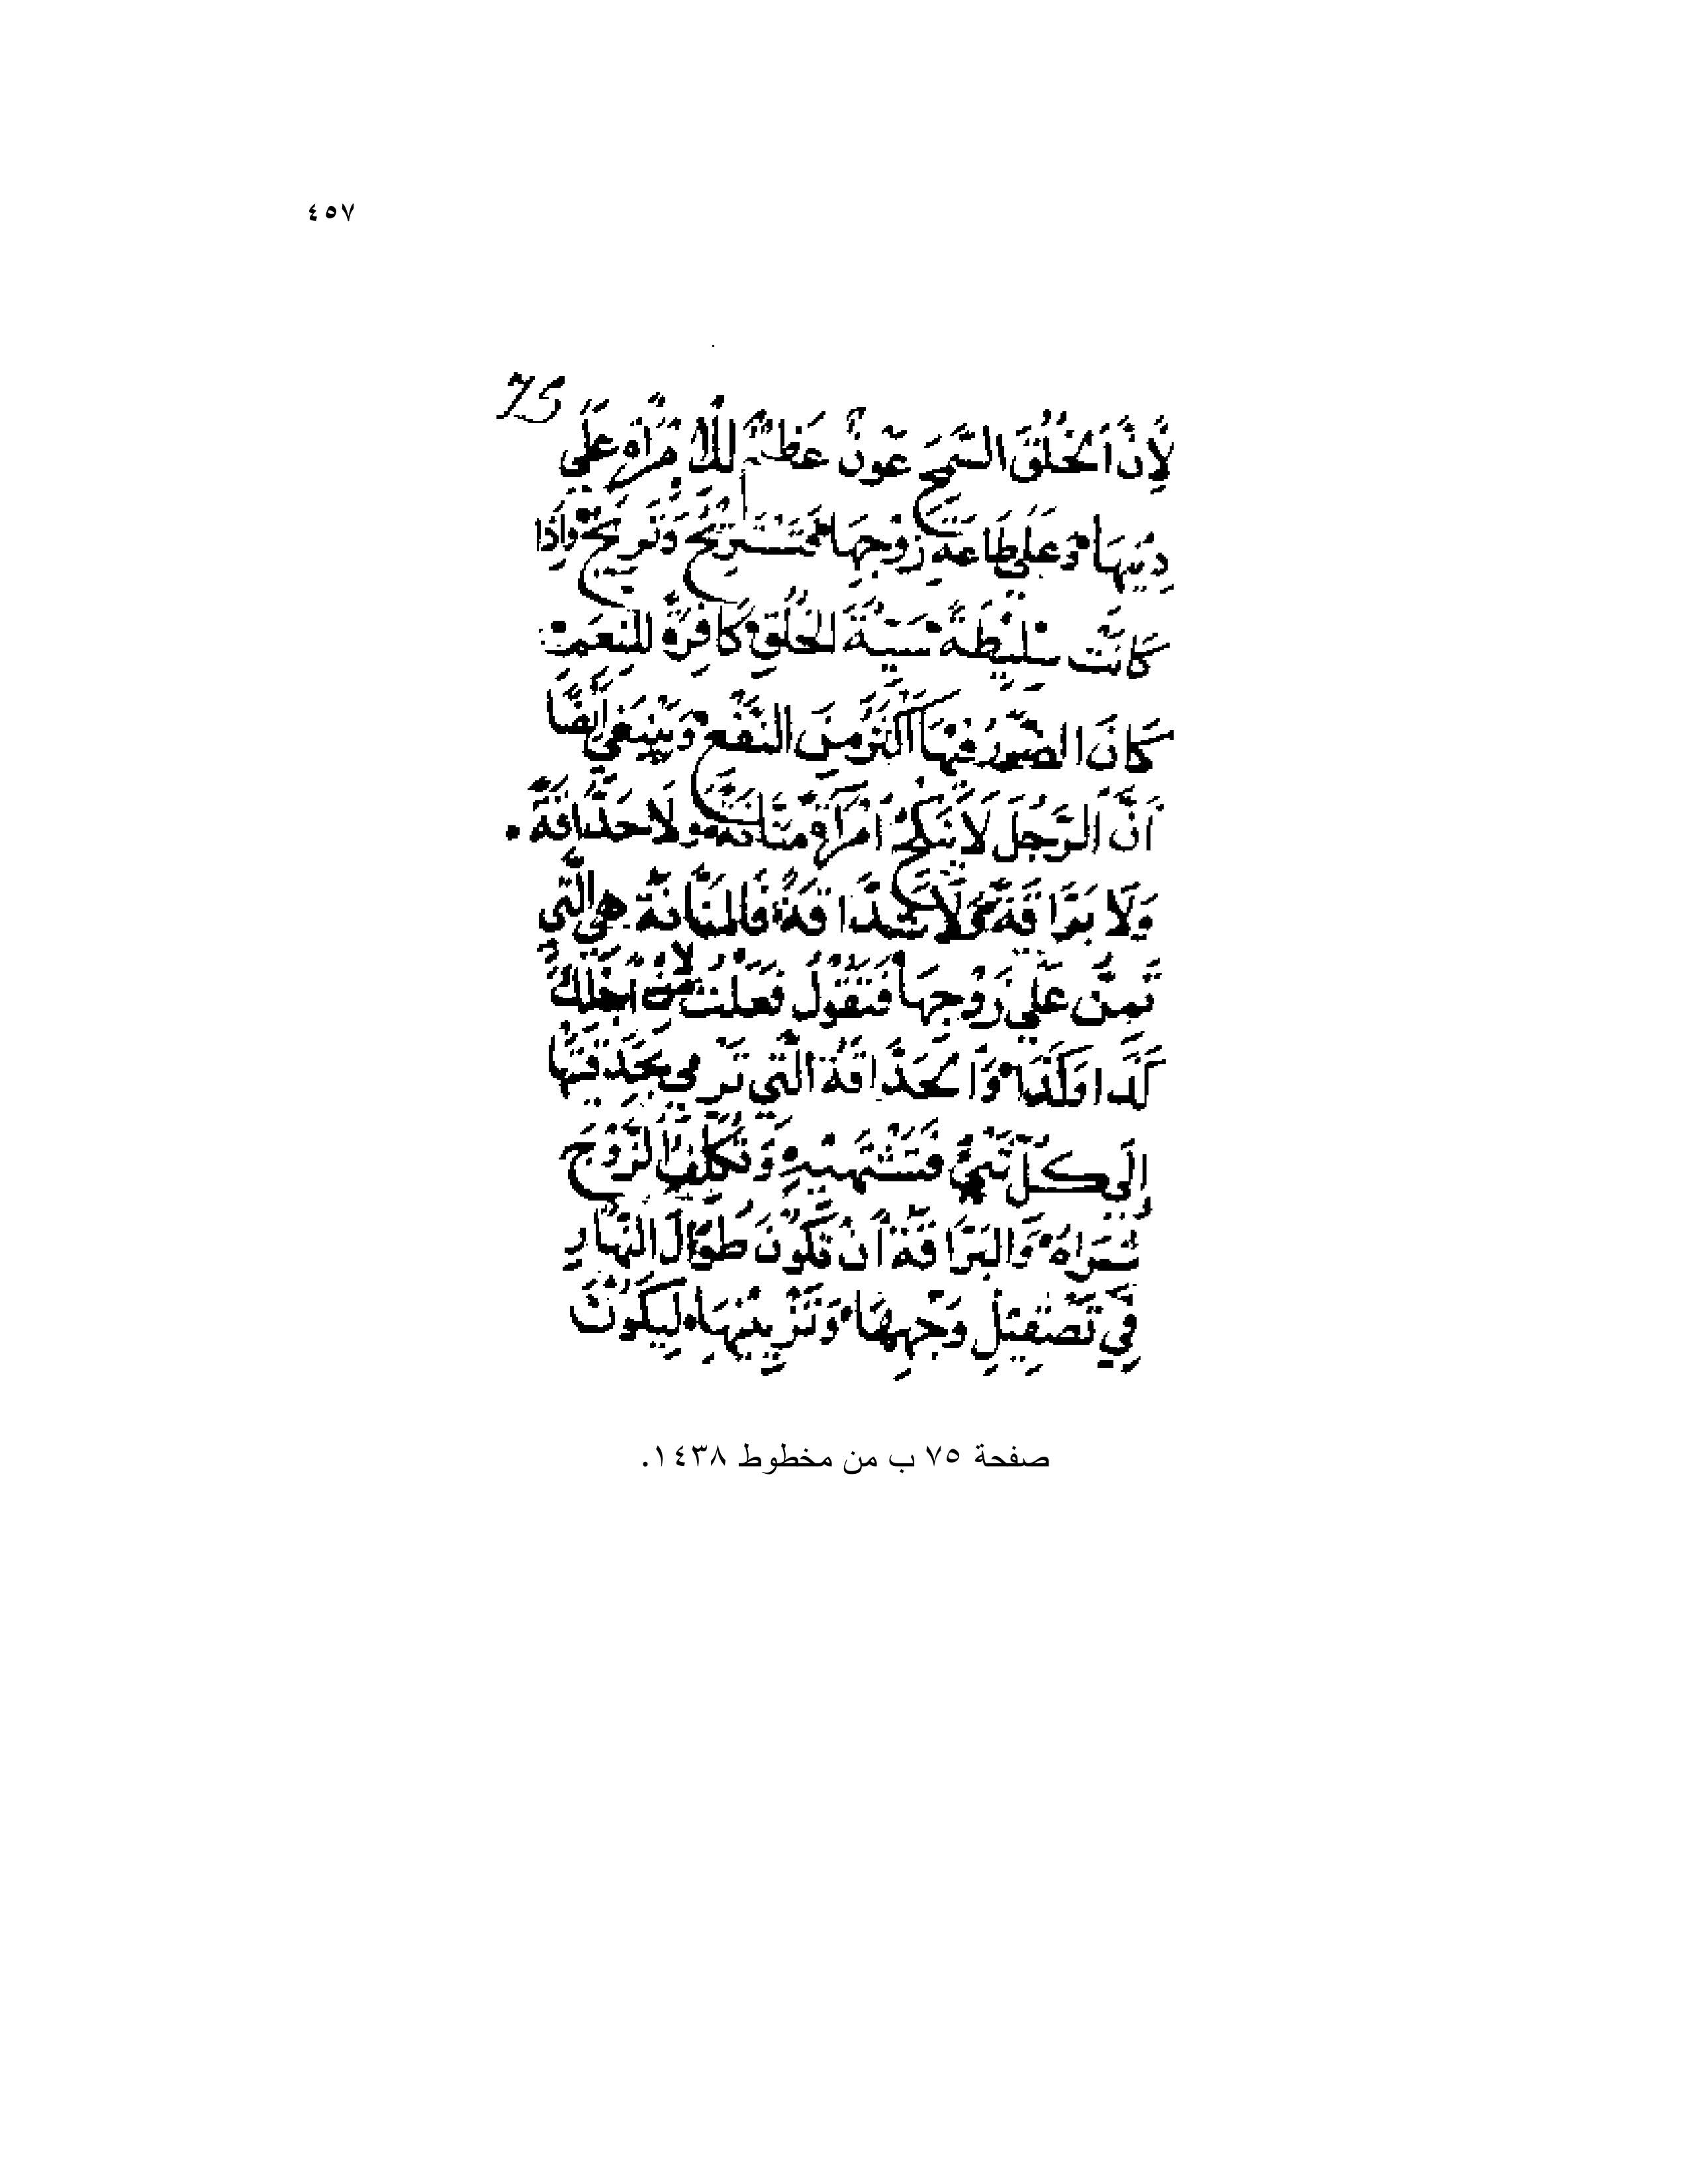 ٤٥٧
75
لِأَنَّ الخُلُقَ السَّمِحَ عَوْنٌ عَظِيمٌ لِلْامْرَأَةِ عَلَى
دِيْنِهَا وَعَلَي طَاعَةِ زَوْجِهَا فَتَسْتَرِيْحُ وَتُرِيحُ وَإِذَا
كَانَتْ سَلِيْطَةً سَيِّئَةَ الخُلُقِ كَافِرَةً لِلنِّعَمِ
كَانَ الضَّرَرُ مِنْهَا أَكْثَرَ مِنَ النَّفْعِ وَيَنْبَغِي أَيْضًا
أَنَّ الرَّجُلَ لَا يَنْكِحُ امْرَأَةً مَنَّانَةً وَلَا حَدَّاقَةً
وَلَا بَرَّاقَةً وَلَا شَدَّاقَةً فَالمَنَّانَةُ هِيَ الَّتِي
تَمِنُّ عَلَي زَوْجِهَا فَتَقُوْلُ فَعَلْتُ لأ مِنْ أَجْلِكَ
كَذَا وَكَذَا وَالحَدَّاقَةُ الَّتِي تَرْمِي بِحَدَقَتِهَا
إِلَي كُلِّ شَيْءٍ فَتَشْتَهِيْهِ وَتُكَلِّفُ الزَّوْجَ
شِرَاهُ وَالبَرَّاقَةُ أَنْ تَكُوْنَ طُوَالَ النَّهَارِ
فِي تَصْقِيْلِ وَجْهِهَا وَتَزْيِيْنِهَا لِيَكُوْنَ
صفحة ٧٥ ب من مخطوط ١٤٣٨.